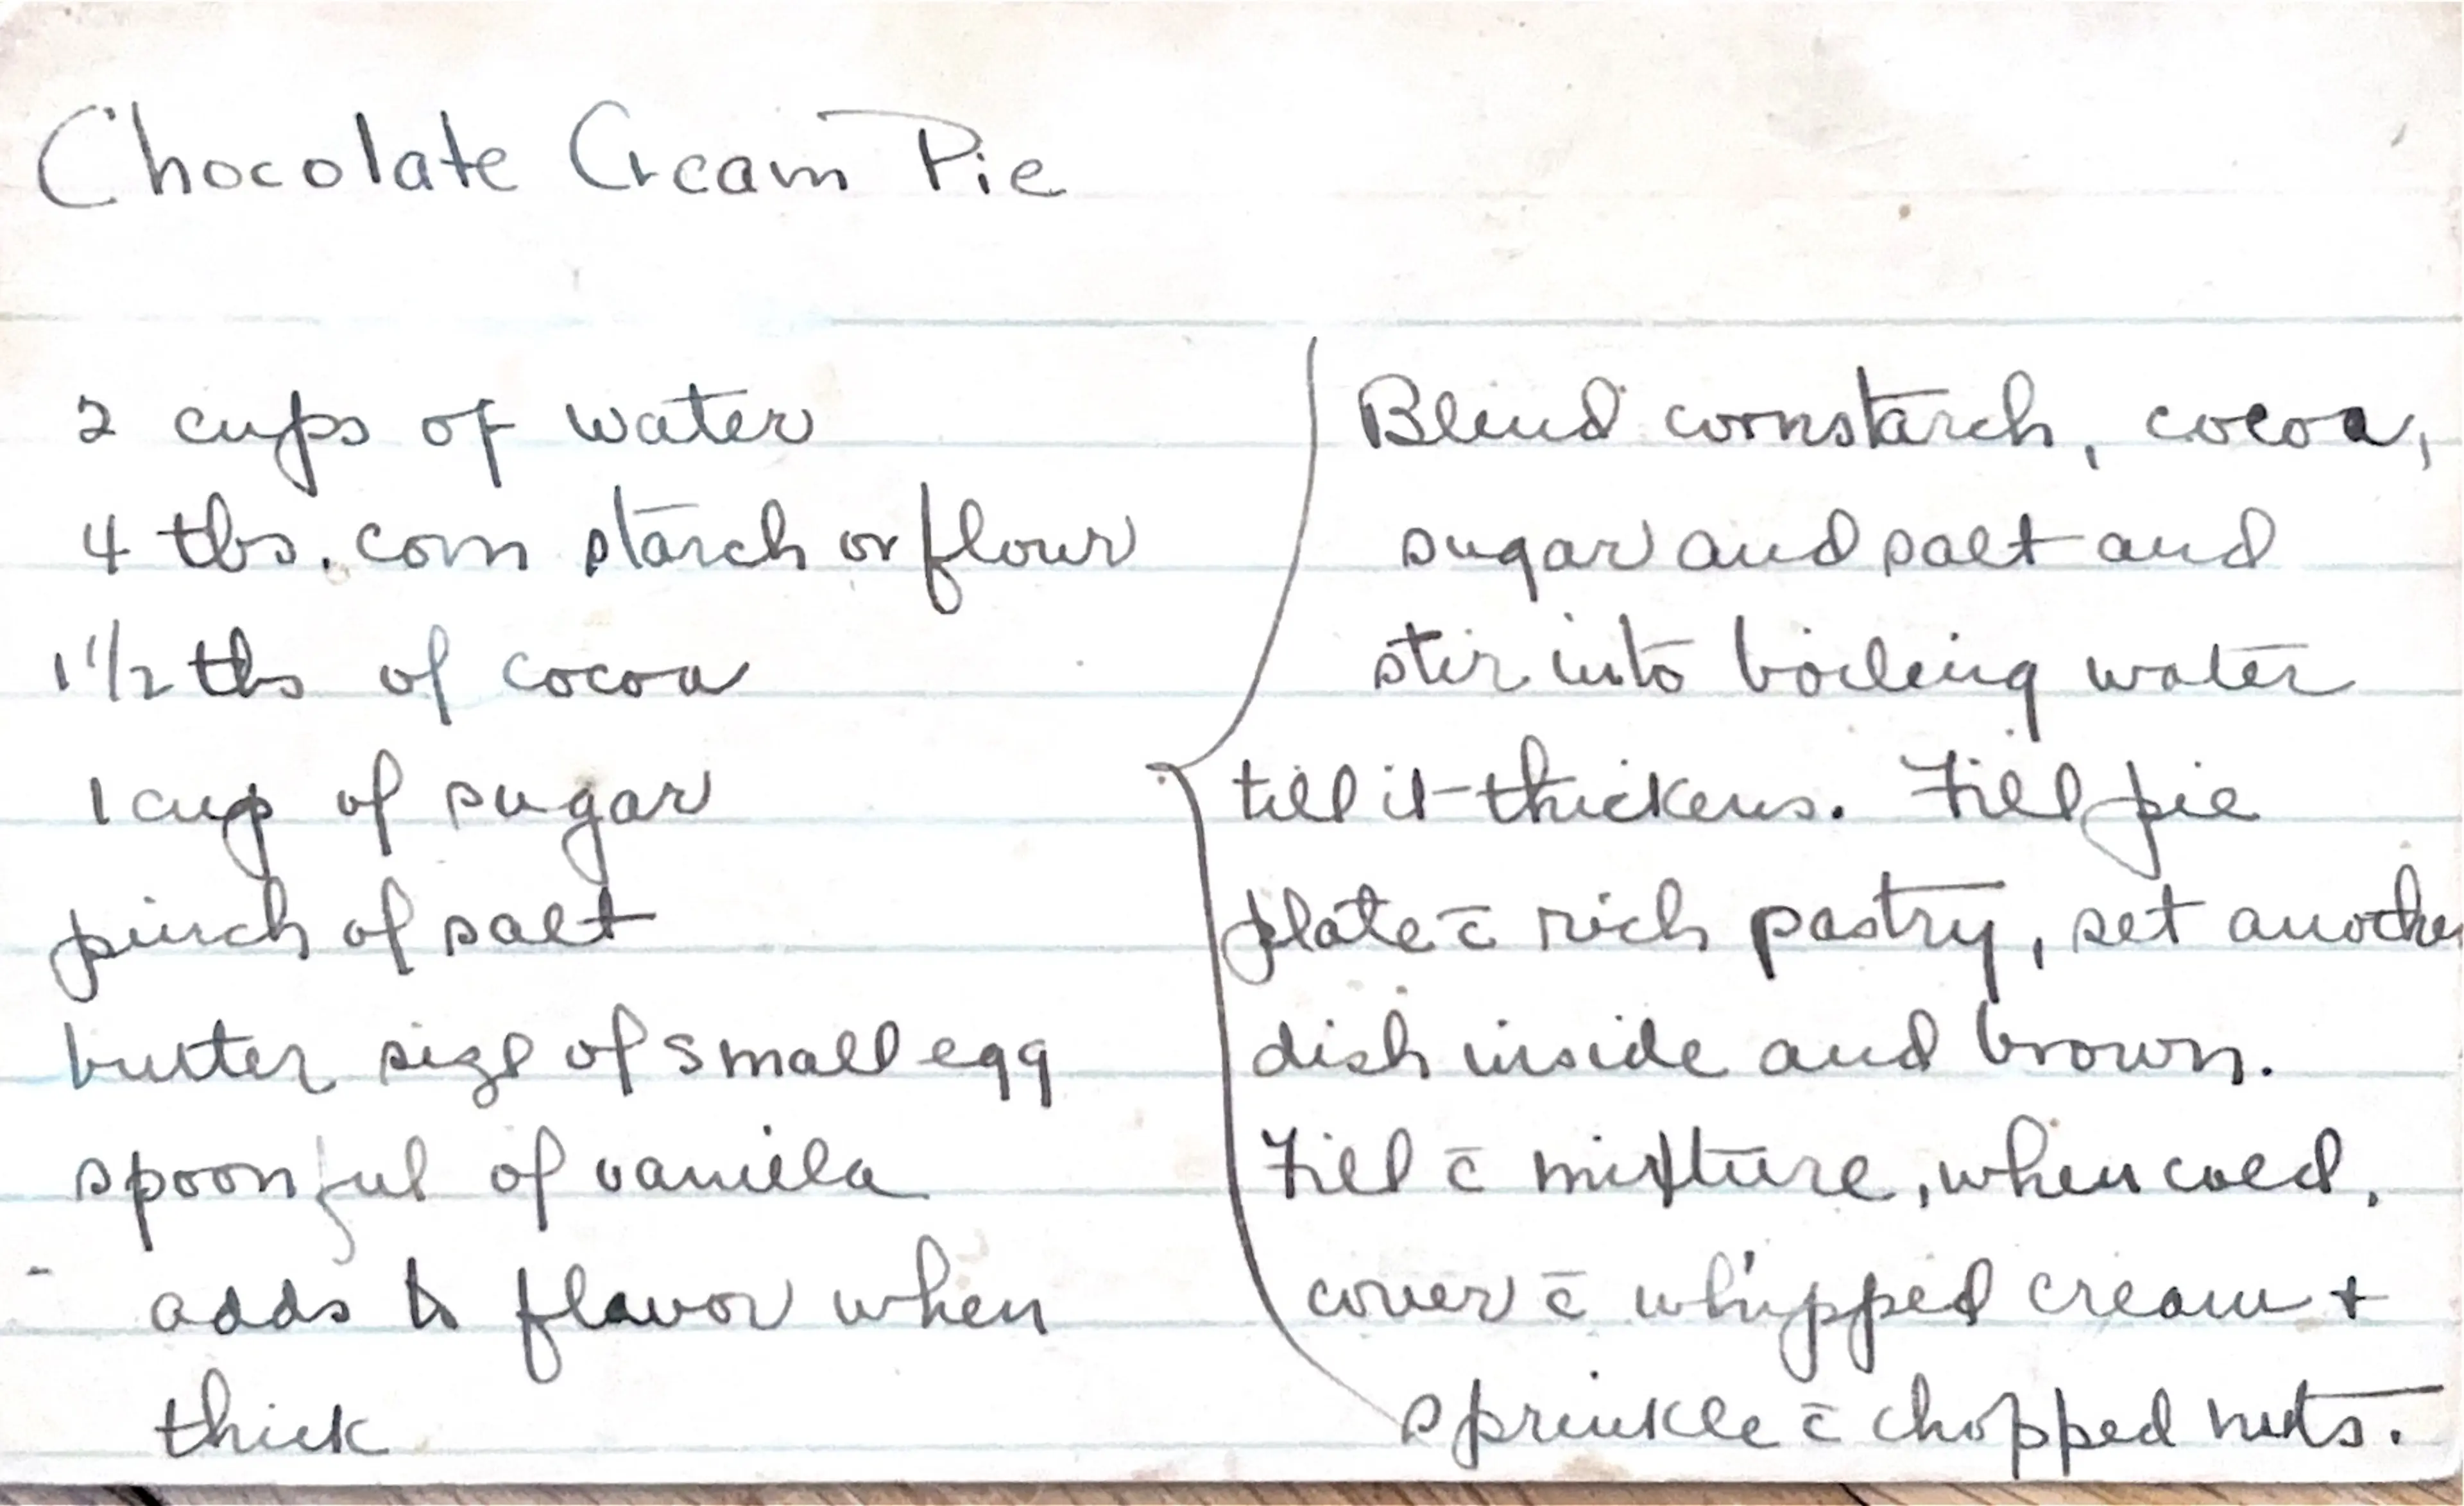 Chocolate Cream Pie
2 cups of water
4 tbs. corn starch or flour
1 1/2 tbs of cocoa
1 cup of sugar
pinch of salt
butter size of small egg
spoonful of vanilla
adds to flavor when
thick
Blend cornstarch, cocoa,
sugar and salt and
stir into boiling water
till it thickens. Fill pie
plate c̄ rich pastry, set another
dish inside and brown.
Fill c̄ mixture, when cold,
cover c̄ whipped cream +
sprinkle c̄ chopped nuts.